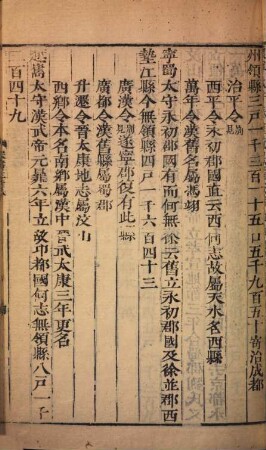 州領縣三戶一千三百一十五口五千九百五十寄治成都
治平令別見
西平令永初郡國直云西何志故屬天水名西縣
萬年令漢舊名屬馮翊
寧蜀太守永初郡國有而何無徐云舊立永初郡國及徐並郡西
墊江縣今無領縣四戶一千六百四十三
廣漢令別見遂寧郡復有此縣
廣都令漢舊縣屬蜀郡
升遷令晉太康地志屬汶山
西鄉令本名南鄉屬漢中晉武太康三年更名
越嶲太守漢武帝元鼎六年立故邛都國何志無領縣八戶一千
三百四十九